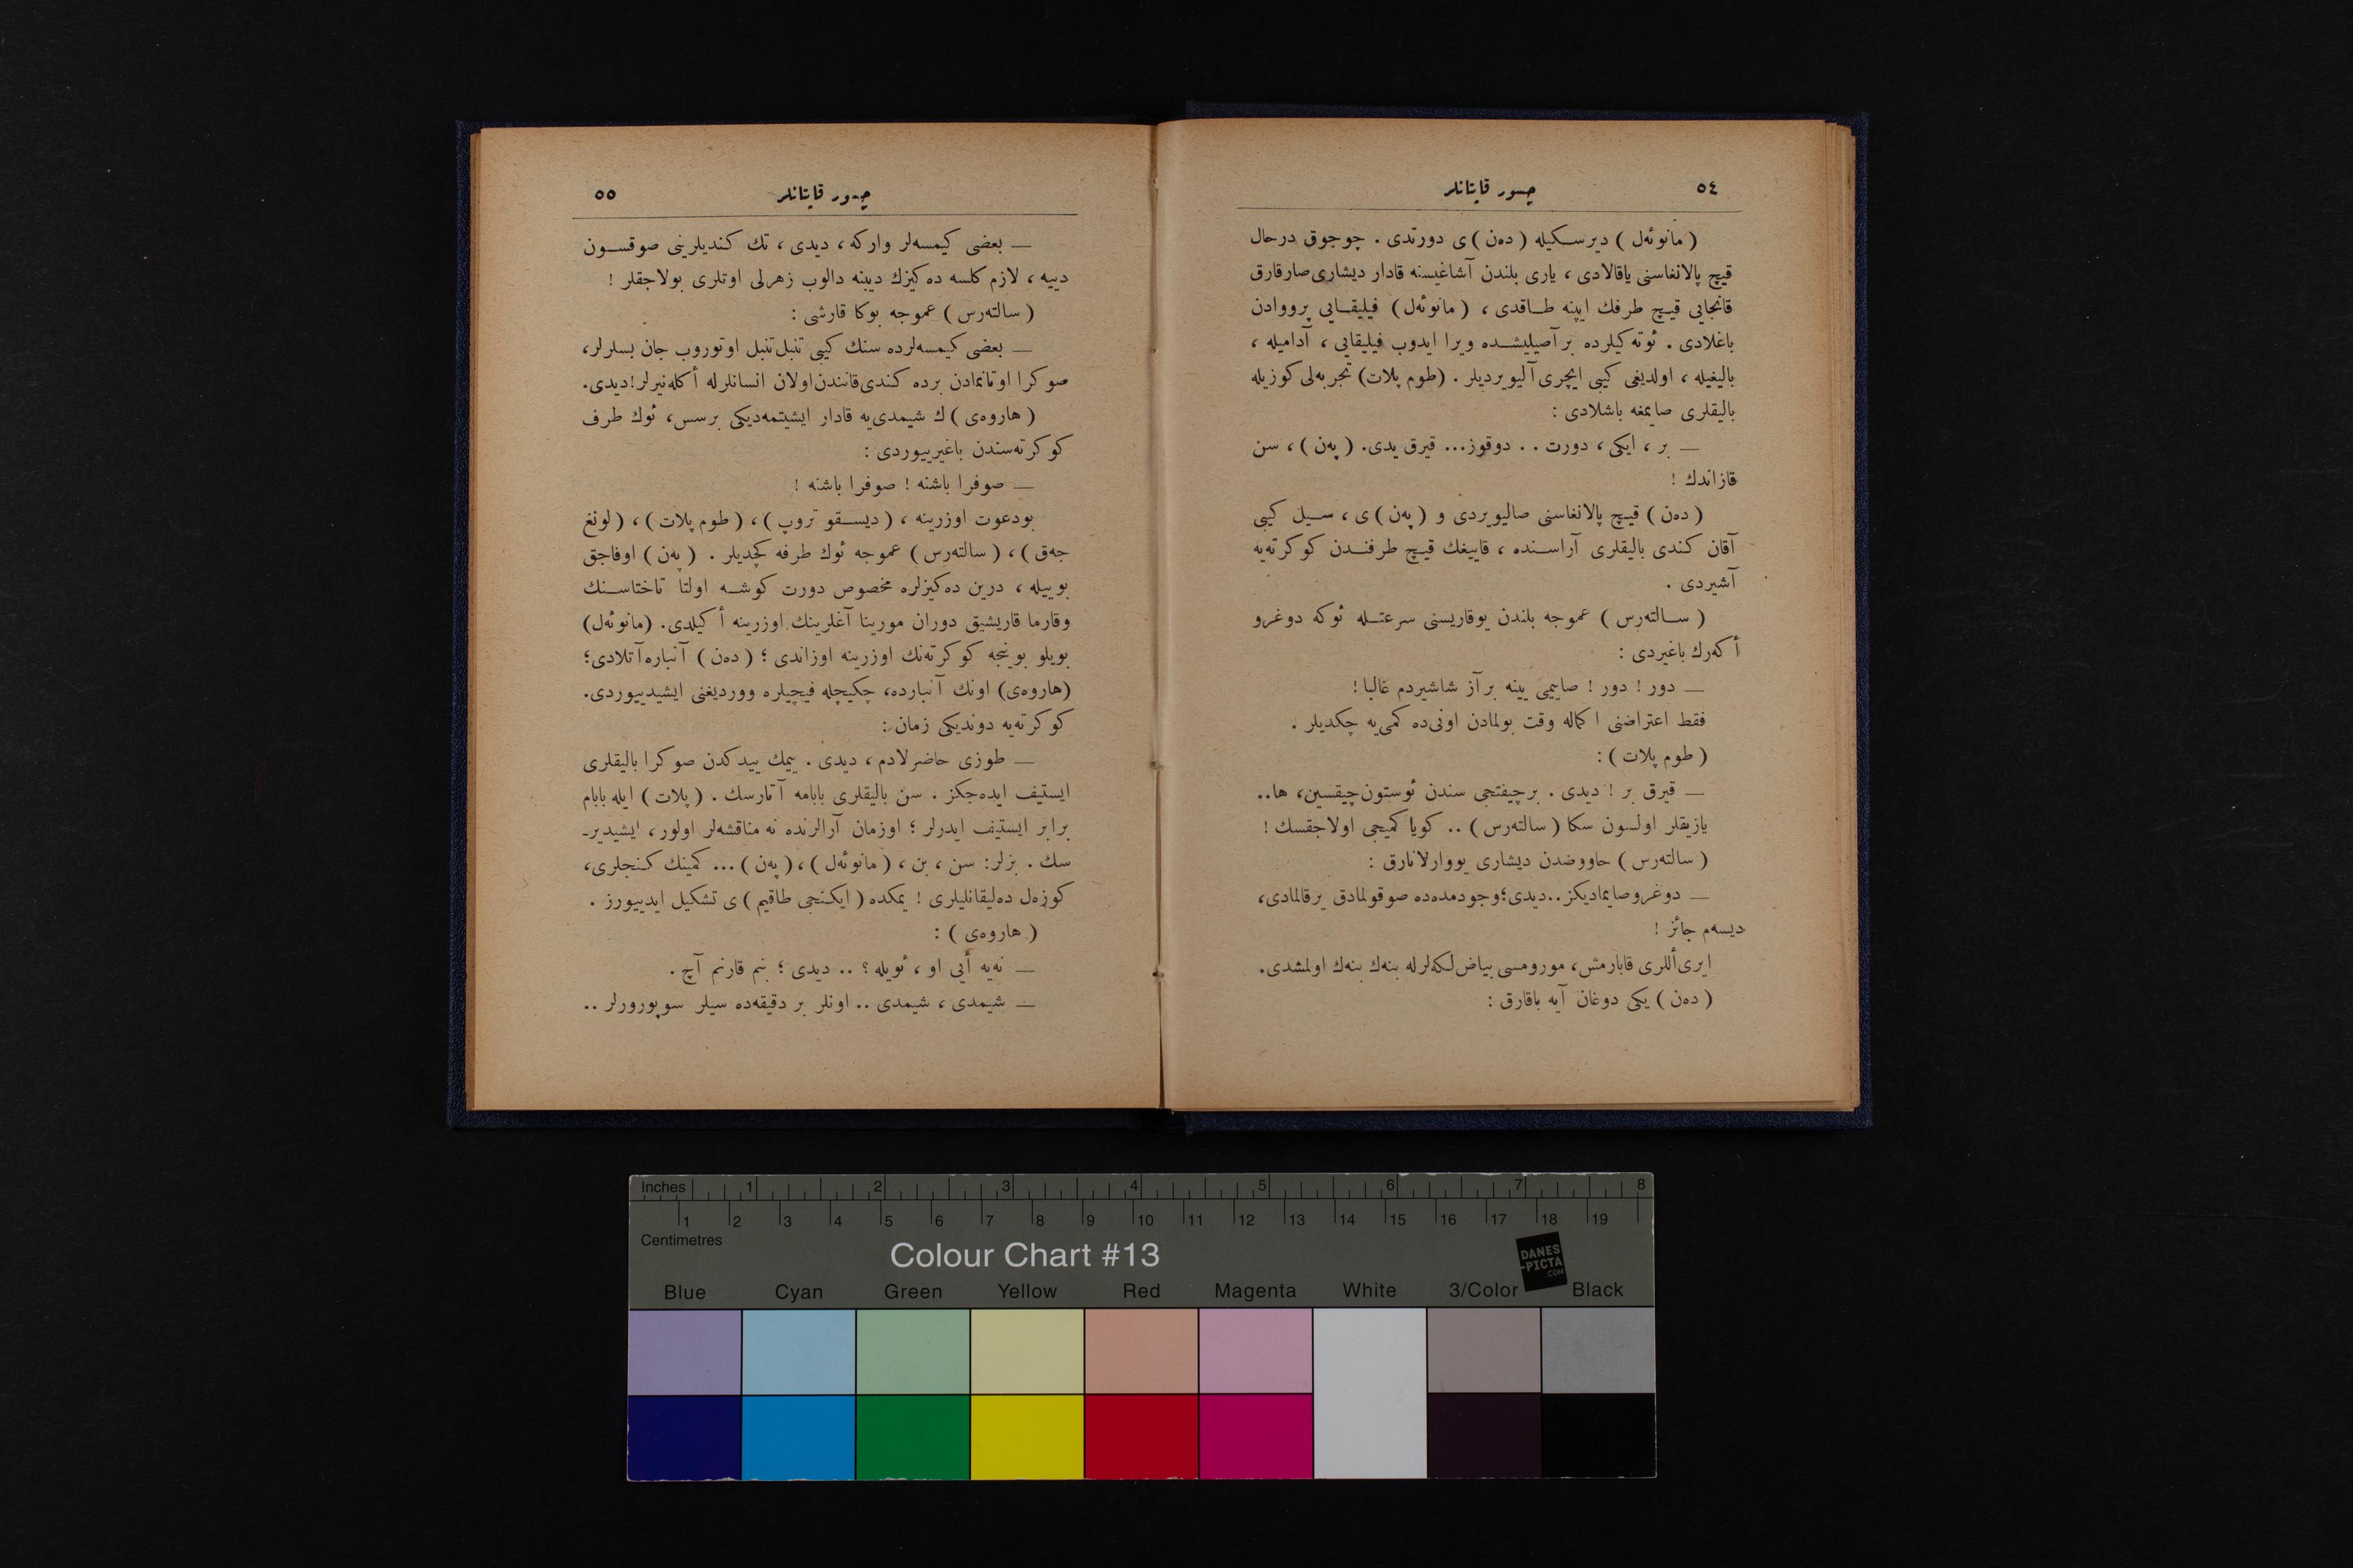 ٥٤
جسور قاپتانلر
( مانوئه‌ل ) ديرسكيله ( ده‌ن ) ى دورتدى . چوجوق درحال
قيچ پالانغاسنى ياقالادى ، يارى بلندن آشاغيسنه قادار ديشارى صارقارق
قانجايى قيچ طرفك ايپنه طاقدى ، ( مانوئه‌ل ) فيليقايى پرووادن
باغلادى . ئوته‌كيلرده بر آصيليشده ويرا ايدوب فيليقايى ، آداميله ،
باليغيله ، اولديغى كيبى ايچرى آليويرديلر . (طوم پلات) تجربه‌لى كوزيله
باليقلرى صايمغه باشلادى :
— بر ، ايكى ، دورت . . دوقوز... قيرق يدى. ( په‌ن ) ، سن
قازاندك !
( ده‌ن ) قيچ پالانغاسنى صاليويردى و ( په‌ن ) ى ، سيل كيبى
آقان كندى باليقلرى آراسنده ، قاييغك قيچ طرفندن كوكرته‌يه
آشيردى .
( سالته‌رس ) عموجه بلندن يوقاريسنى سرعتله ئوكه دوغرو
أكه‌رك باغيردى :
— دور ! دور ! صاييمى يينه بر آز شاشيردم غالبا !
فقط اعتراضنى اكماله وقت بولمادن اونى‌ده كمى‌يه چكديلر .
( طوم پلات ) :
— قيرق بر ! ديدى . برچيفتجى سندن ئوستون‌چيقسين، ها..
يازيقلر اولسون سكا ( سالته‌رس ) .. كويا كميجى اولاجقسك !
( سالته‌رس ) حاووضدن ديشارى يووارلانارق :
— دوغرو صايماديكز .. ديدى؛ وجودمده‌ده صوقولمادق يرقالمادى،
ديسه‌م جائز !
ايرى أللرى قابارمش، مورومسى بياض لكه‌لرله بنه‌ك بنه‌ك اولمشدى.
( ده‌ن ) يكى دوغان آيه باقارق :
٥٥
جسور قاپتانلر
— بعضى كيمسه‌لر واركه ، ديدى ، تك كنديلرينى صوقسون
دييه ، لازم كلسه ده‌كيزك ديبنه دالوب زهرلى اوتلرى بولاجقلر !
( سالته‌رس ) عموجه بوكا قارشى :
— بعضى كيمسه‌لرده سنك كيبى تنبل تنبل اوتوروب جان بسلرلر،
صوكرا اوتانمادن برده كندى قانندن اولان انسانلرله أكله‌نيرلر! ديدى.
( هاروه‌ى ) ك شيمدى‌يه قادار ايشيتمه‌ديكى برسس، ئوك طرف
كوكرته‌سندن باغيرييوردى :
— صوفرا باشنه ! صوفرا باشنه !
بودعوت اوزرينه ، ( ديسقو تروپ ) ، ( طوم پلات ) ، ( لونغ
جه‌ق ) ، ( سالته‌رس ) عموجه ئوك طرفه كچديلر . ( په‌ن ) اوفاجق
بوييله ، درين ده‌كيزلره مخصوص دورت كوشه اولتا تاختاسنك
وقارما قاريشيق دوران مورينا آغلرينك اوزرينه أكيلدى. (مانوئه‌ل)
بويلو بوينجه كوكرته‌نك اوزرينه اوزاندى ؛ ( ده‌ن ) آنباره آتلادى؛
(هاروه‌ى) اونك آنبارده، چكيچله فيچيلره وورديغنى ايشيدييوردى.
كوكرته‌يه دونديكى زمان :
— طوزى حاضرلادم ، ديدى . ييمك ييدكدن صوكرا باليقلرى
ايستيف ايده‌جكز . سن باليقلرى بابامه آتارسك . ( پلات ) ايله بابام
برابر ايستيف ايدرلر ؛ اوزمان آرالرنده نه مناقشه‌لر اولور، ايشيدير-
سك . بزلر: سن ، بن ، ( مانوئه‌ل ) ، ( په‌ن ) ... كمينك كنجلرى،
كوزه‌ل ده‌ليقانليلرى ! يمكده ( ايكنجى طاقيم ) ى تشكيل ايدييورز .
( هاروه‌ى ) :
— نه‌يه أيى او ، ئويله ؟ .. ديدى ؛ بنم قارنم آچ .
— شيمدى ، شيمدى .. اونلر بر دقيقه‌ده سيلر سوپورورلر ..
Inches 1 2 3 4 5 6 7 8
1 2 3 4 5 6 7 8 9 10 11 12 13 14 15 16 17 18 19
Centimetres
Colour Chart #13
DANES
-PICTA
.COM
Blue Cyan Green Yellow Red Magenta White 3/Color Black